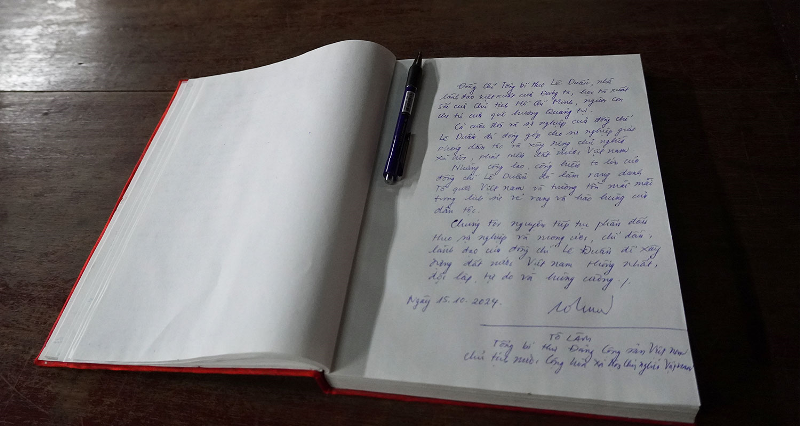 Đồng chí Tổng bí thư Lê Duẩn, nhà
lãnh đạo kiệt xuất của Đảng ta, học trò xuất
sắc của Chủ tịch Hồ Chí Minh, người con
ưu tú của quê hương Quảng Trị.
Cả cuộc đời và sự nghiệp của đồng chí
Lê Duẩn đã đóng góp cho sự nghiệp giải
phóng dân tộc và xây dựng chủ nghĩa
xã hội, phát triển đất nước Việt Nam
Những công lao, cống hiến to lớn của
đồng chí Lê Duẩn đã làm rạng danh
Tổ quốc Việt Nam và trường tồn mãi mãi
trong lịch sử vẻ vang và hào hùng của
dân tộc.
Chúng tôi nguyện tiếp tục phấn đấu
theo sự nghiệp và mong ước, chỉ đạo,
lãnh đạo của đồng chí Lê Duẩn để xây
dựng đất nước Việt Nam thống nhất,
độc lập, tự do và hùng cường./.
Ngày 15.10.2024.
TÔ LÂM
Tổng bí thư Đảng Cộng sản Việt Nam
Chủ tịch nước Cộng hòa xã hội chủ nghĩa Việt Nam